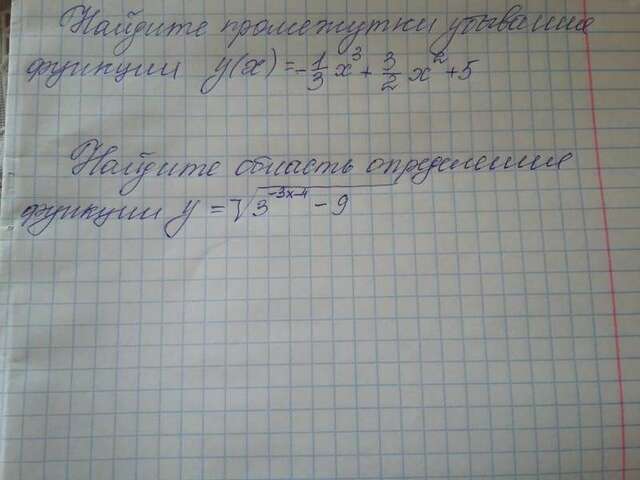 Найдите промежутки убывания
функции y(x) = -1/3 x³ + 3/2 x² + 5
Найдите область определения
функции y = √(3^(-3x-4) - 9)